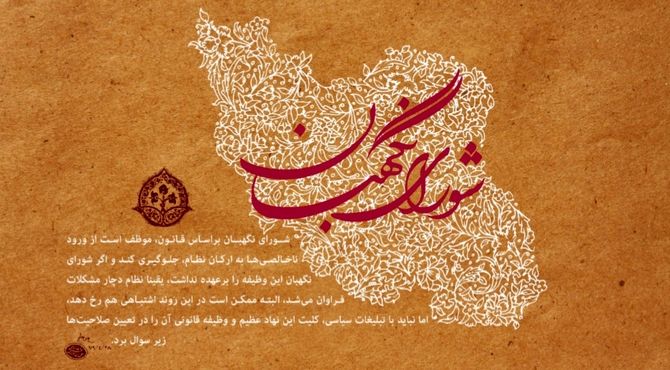 شورای نگهبان
شورای نگهبان براساس قانون، موظف است از ورود
ناخالصی‌ها به ارکان نظام، جلوگیری کند و اگر شورای
نگهبان این وظیفه را برعهده نداشت، یقینا نظام دچار مشکلات
فراوان می‌شد، البته ممکن است در این روند اشتباهی هم رخ دهد،
اما نباید با تبلیغات سیاسی، کلیت این نهاد عظیم و وظیفه قانونی آن را در تعیین صلاحیت‌ها
زیر سوال برد.